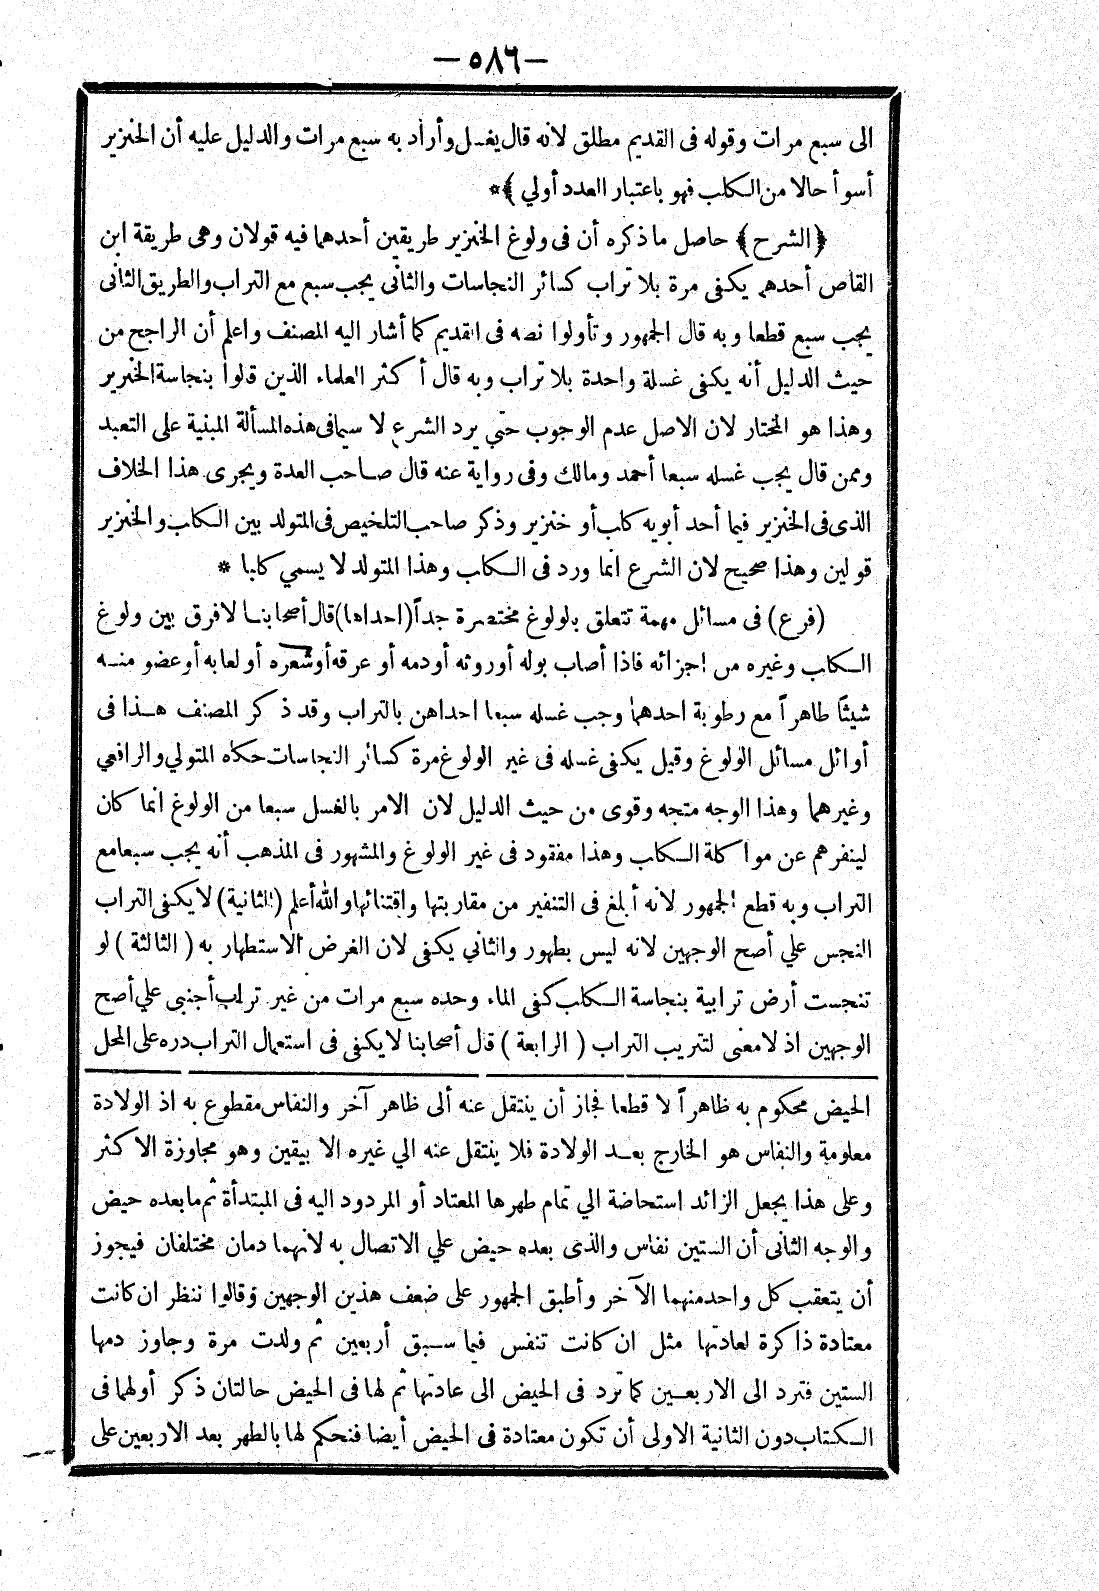 — ٥٨٦ —
الى سبع مرات وقوله فى القديم مطلق لانه قال يغسل وأراد به سبع مرات والدليل عليه أن الخنزير
أسوأ حالا من الكلب فهو باعتبار العدد أولي ﴾*
﴿ الشرح ﴾ حاصل ما ذكره أن فى ولوغ الخنزير طريقين أحدهما فيه قولان وهى طريقة ابن
القاص أحدهم يكفى مرة بلا تراب كسائر النجاسات والثانى يجب سبع مع التراب والطريق الثانى
يجب سبع قطعا وبه قال الجمهور وتأولوا نصه فى القديم كما أشار اليه المصنف واعلم أن الراجح من
حيث الدليل أنه يكفى غسلة واحدة بلا تراب وبه قال أكثر العلماء الذين قالوا بنجاسة الخنزير
وهذا هو المختار لان الاصل عدم الوجوب حتي يرد الشرع لا سيما فى هذه المسألة المبنية على التعبد
وممن قال يجب غسله سبعا أحمد ومالك وفى رواية عنه قال صاحب العدة ويجرى هذا الخلاف
الذى فى الخنزير فيما أحد أبويه كلب أو خنزير وذكر صاحب التلخيص فى المتولد بين الكلب والخنزير
قولين وهذا صحيح لان الشرع انما ورد فى الكلب وهذا المتولد لا يسمي كلبا *
(فرع) فى مسائل مهمة تتعلق بالولوغ مختصرة جداً (احداها) قال أصحابنا لا فرق بين ولوغ
الكلب وغيره من اجزائه فاذا أصاب بوله أوروثه أودمه أو عرقه أوشعره أو لعابه أوعضو منه
شيئا طاهراً مع رطوبة احدهما وجب غسله سبعا احداهن بالتراب وقد ذكر المصنف هذا فى
أوائل مسائل الولوغ وقيل يكفى غسله فى غير الولوغ مرة كسائر النجاسات حكاه المتولي والرافعي
وغيرهما وهذا الوجه متجه وقوى من حيث الدليل لان الامر بالغسل سبعا من الولوغ انما كان
لينفرهم عن مواكلة الكلاب وهذا مفقود فى غير الولوغ والمشهور فى المذهب أنه يجب سبعا مع
التراب وبه قطع الجمهور لانه أبلغ فى التنفير من مقاربتها واقتنائها والله أعلم (الثانية) لا يكفى التراب
النجس علي أصح الوجهين لانه ليس بطهور والثاني يكفى لان الغرض الاستطهار به ( الثالثة ) لو
تنجست أرض ترابية بنجاسة الكلب كفى الماء وحده سبع مرات من غير تراب أجنبى علي أصح
الوجهين اذ لا معنى لتتريب التراب ( الرابعة ) قال أصحابنا لا يكفى فى استعمال التراب دره على المحل
الحيض محكوم به ظاهراً لا قطعا فجاز أن ينتقل عنه ألى ظاهر آخر والنفاس مقطوع به اذ الولادة
معلومة والنفاس هو الخارج بعد الولادة فلا ينتقل عنه الي غيره الا بيقين وهو مجاوزة الاكثر
وعلى هذا يجعل الزائد استحاضة الي تمام طهرها المعتاد أو المردود اليه فى المبتدأة ثم ما بعده حيض
والوجه الثانى أن الستين نفاس والذى بعده حيض علي الاتصال به لانهما دمان مختلفان فيجوز
أن يتعقب كل واحد منهما الآخر وأطبق الجمهور على ضعف هذين الوجهين وقالوا ننظر ان كانت
معتادة ذاكرة لعادتها مثل ان كانت تنفس فيما سبق أربعين ثم ولدت مرة وجاوز دمها
الستين فترد الى الاربعين كما ترد فى الحيض الى عادتها ثم لها فى الحيض حالتان ذكر أولهما فى
الكتاب دون الثانية الاولى أن تكون معتادة فى الحيض أيضا فنحكم لها بالطهر بعد الاربعين على